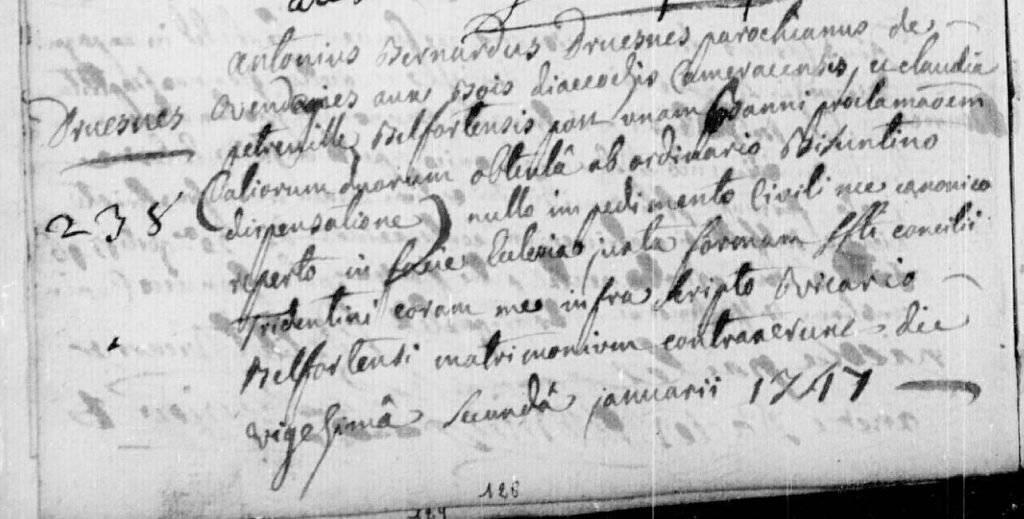 antonius Bernardus Druesnes parochianus de
Druesnes
ovendegies aux Bois diaecoesis Cameracensis, et claudia
petremille, Belfortensis post unam Banni proclamaõem
(aliorum duorum obtentâ ab ordinario Bisuntino
238
dispensatione) nullo impedimento Civili nec canonico
reperto in facie Ecclesiae juxta formam SSti concilii
Tridentini coram me infra scripto vicario
Belfortensi matrimonium contraxerunt die
vigesimâ secundâ januarii 1747
126